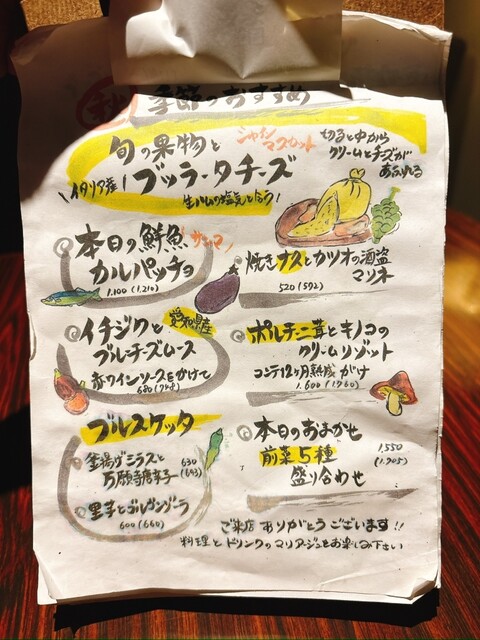 秋 季節のおすすめ
旬の果物と
シャインマスカット
イタリア産！ブッラータチーズ
生ハムの塩気と合う！
切ると中から
クリームとチーズが
あふれる
本日の鮮魚 サンマ
カルパッチョ
1,100 (1,210)
焼きナスとカツオの酒盗
マリネ
520 (572)
イチジクと 愛知県産
ブルーチーズムース
赤ワインソースをかけて
680 (748)
ポルチーニ茸とキノコの
クリームリゾット
コンテ12ヶ月熟成がけ
1,600 (1,760)
ブルスケッタ
釜揚げシラスと
万願寺唐辛子
630
(693)
里芋とゴルゴンゾーラ
600 (660)
本日のおまかせ
前菜5種
盛り合わせ
1,550
(1,705)
ご来店 ありがとうございます!!
料理とドリンクのマリアージュをお楽しみ下さい